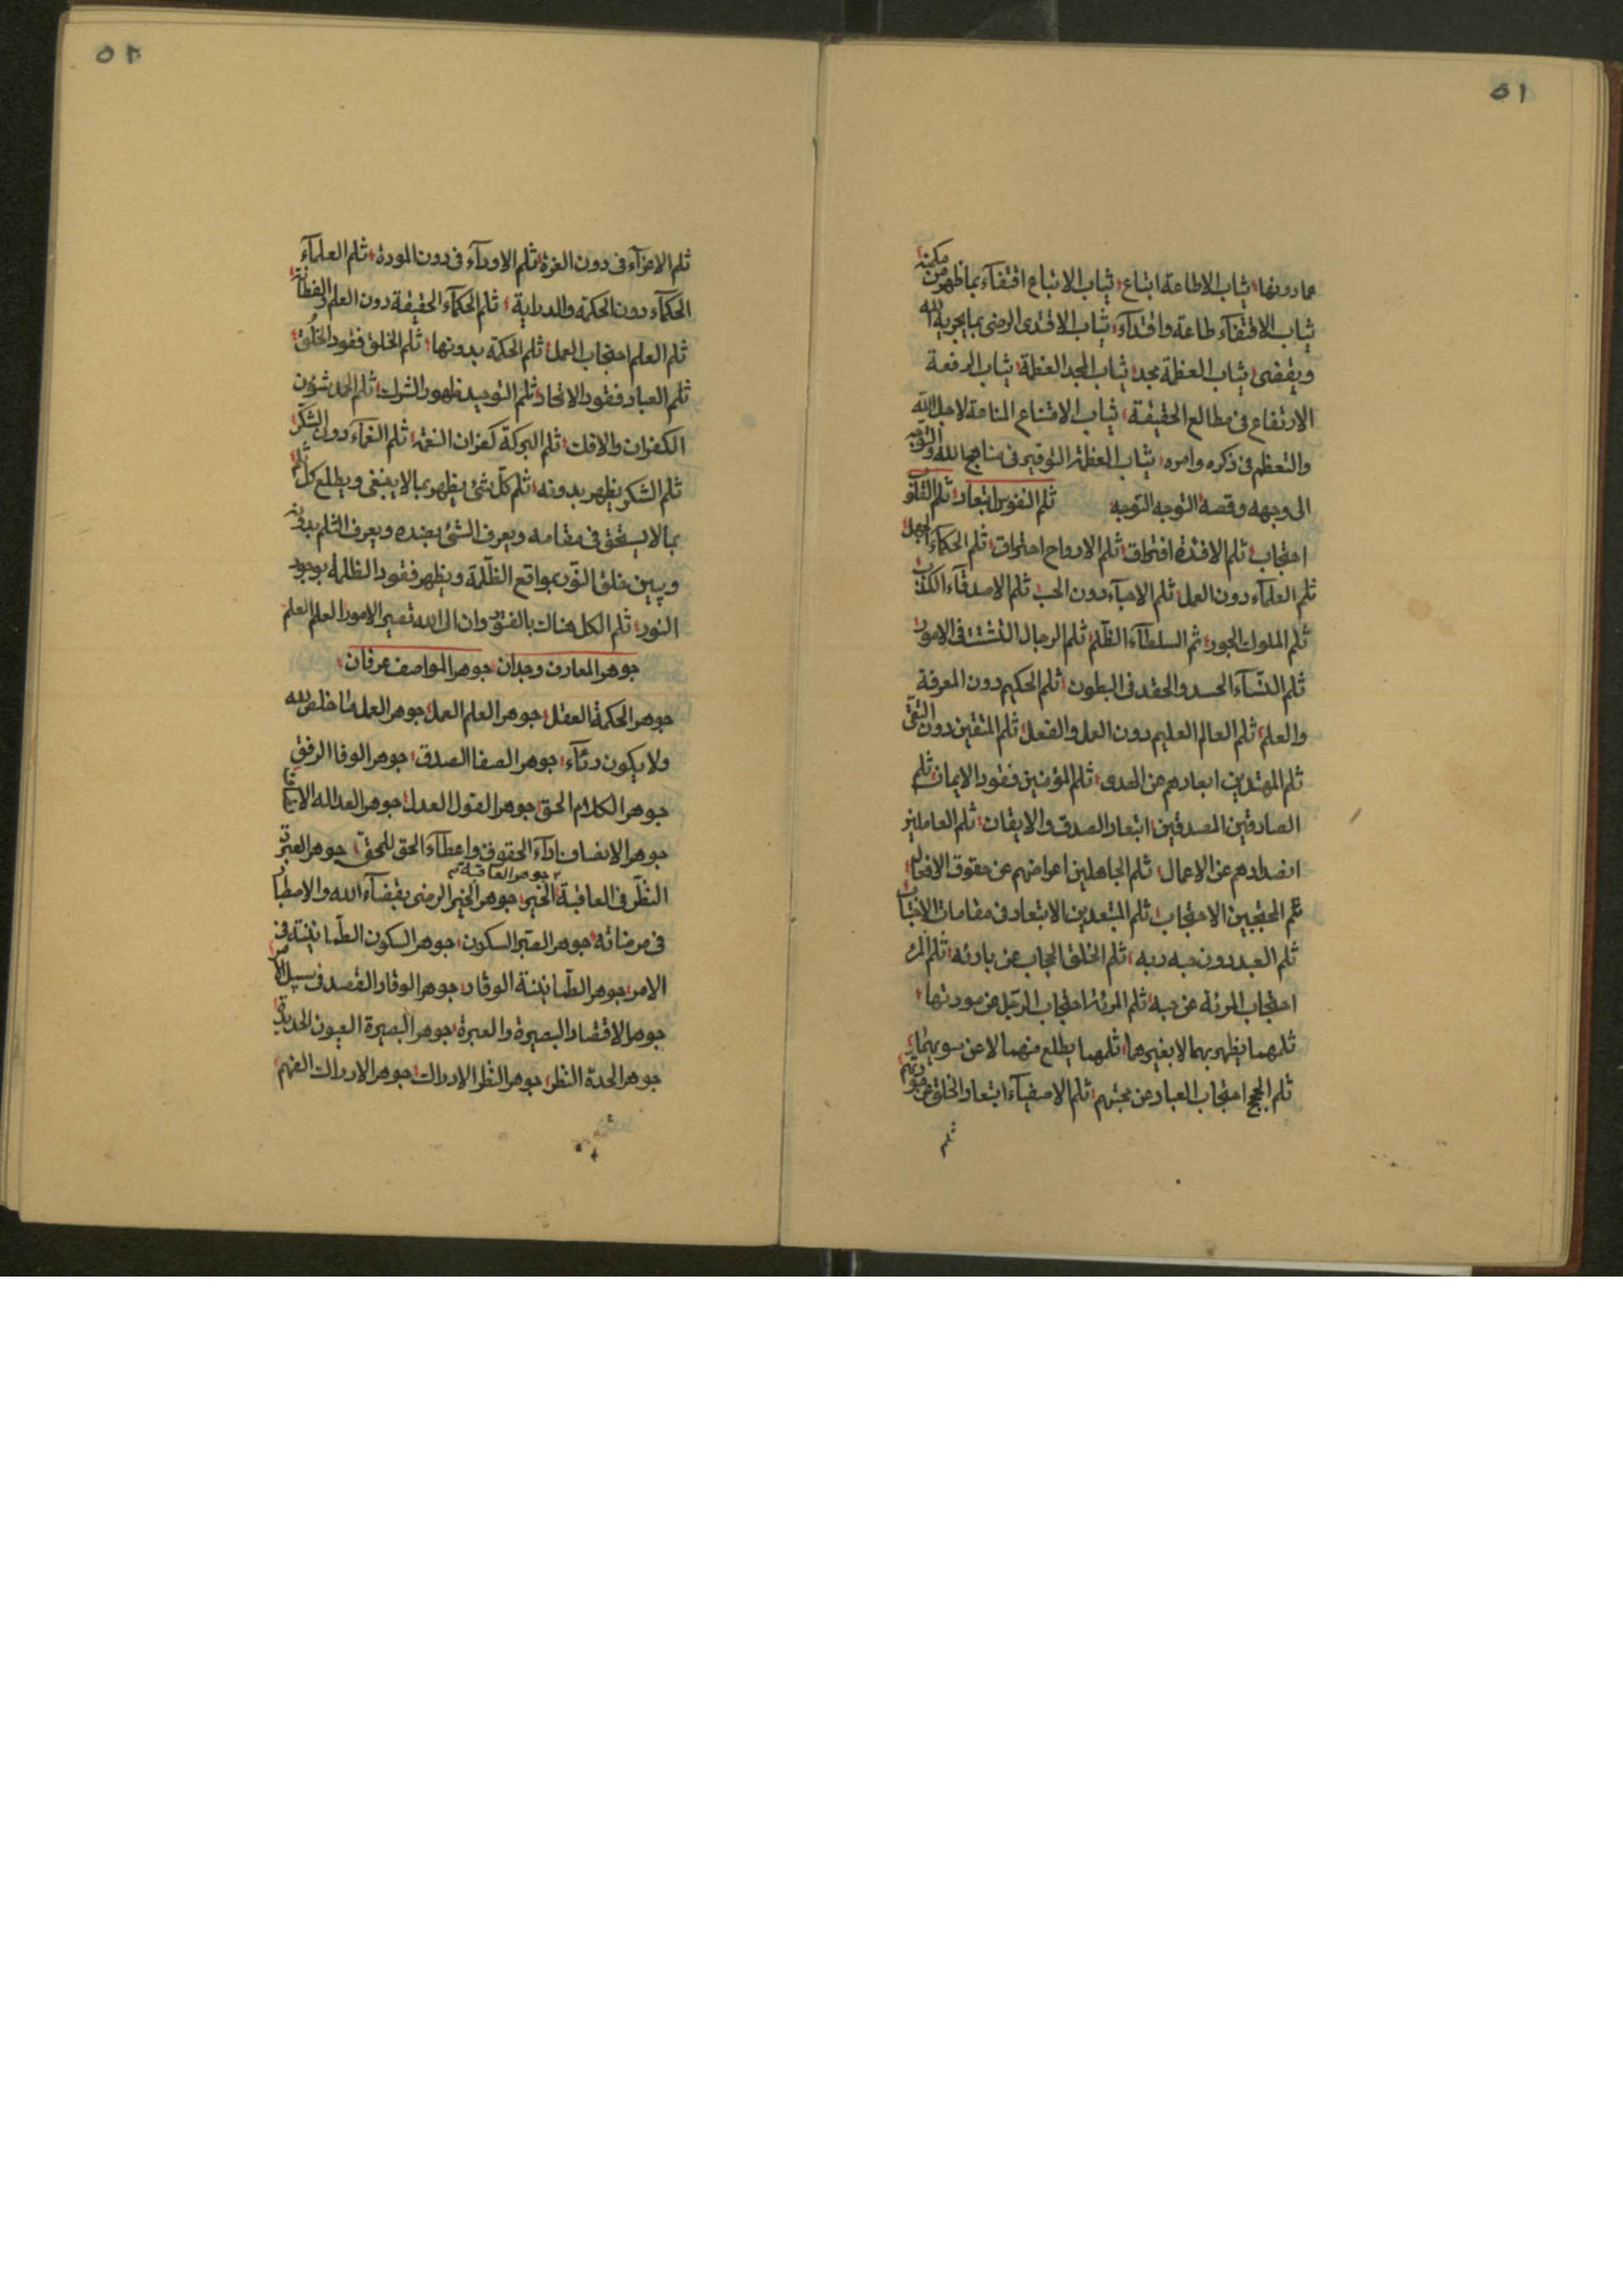 ٥١
عما دونها؛ ثياب الاطاعة اتباع؛ ثياب الاتباع اقتفآء بما ظهر من حكمته
ثياب الاقتفآء طاعة واقتدآء؛ ثياب الاقتدى الرضى بما يجريه الله
ويقضى؛ ثياب العظمة مجد؛ ثياب المجد العظمة؛ ثياب الرفعة
الارتفاع فى مطالع الحقيقة؛ ثياب الامتناع المناعة لاجل الله
والتعظم فى ذكره وامره؛ ثياب العظمة التوقير فى مناهج الله والتوجه
الى وجهه وقصة التوجه التوجه ثلم النفوس ابتعاد؛ ثلم القلوب
احتجاب؛ ثلم الافئدة افتراق؛ ثلم الارواح احتراق؛ ثلم الحكمآء الجهل؛
ثلم العلمآء دون العمل؛ ثلم الاحبآء دون الحب؛ ثلم الاصدقآء الكذب
ثلم الملوك الجور؛ ثم السلطآء الظلم؛ ثلم الرجال التشتت فى الامور؛
ثلم النسآء الحسد والحقد فى البطون؛ ثلم الحكيم دون المعرفة
والعلم؛ ثلم العالم العليم دون العمل والفعل؛ ثلم المتقين دون التقى
ثلم المهتدين ابعادهم عن الهدى؛ ثلم المؤمنين فقود الايمان؛ ثلم
الصادقين المصدقين ابتعاد الصدق والايقان؛ ثلم العاملين
انصدادهم عن الاعمال؛ ثلم الجاهلين اعراضهم عن حقوق الافعال؛
ثلم المحتجبين الاحتجاب؛ ثلم المبتعدين الابتعاد فى مقامات
ثلم العبد دون حبه ربه؛ ثلم الخلق الحجاب عن بارئه؛ ثلم المرء
احتجاب المرئة عن حبه؛ ثلم المرئة احتجاب الرجل عن مودتها؛
ثلمهما يظهر بهما لا بغيرهما؛ ثلمهما يطلع منهما لا عن سويهما؛
ثلم الحجج احتجاب العباد عن محبتهم؛ ثلم الاصفيآء ابتعاد الخلق عن مودتهم
ثلم
٥٢
ثلم الاعزآء فى دون العزة؛ ثلم الاودآء فى دون المودة؛ ثلم العلمآء
الحكمآء دون الحكمة والدراية؛ ثلم الحكمآء الحقيقة دون العلم والفطانة؛
ثلم العلم احتجاب العمل؛ ثلم الحكمة بدونها؛ ثلم الخلق فقود الخلق؛
ثلم العباد فقود الاتحاد؛ ثلم التوحيد ظهور الشرك؛ ثلم الحمد شئون
الكفران والافك؛ ثلم البركة كفران النعمة؛ ثلم النعمآء دون الشكر؛
ثلم الشكر يظهر بدونه؛ ثلم كل شئ يظهر بما لا ينبغى ويطلع كل ثلم
بما لا يستحق فى مقامه ويعرف الشئ بضده ويعرف الثلم بدونه
ويبين خلق النور بمواقع الظلمة ويظهر فقود الظلمة بوجود
النور؛ ثلم الكل هناك بالفتق وان الى الله تصير الامور العلم العلم
جوهر المعارف وجدان؛ جوهر المواصف عرفان؛
جوهر الحكمة العقل؛ جوهر العلم العمل؛ جوهر العمل ما خلص لله
ولا يكون رئآء؛ جوهر الصفا الصدق؛ جوهر الوفا الرفق
جوهر الكلام الحق؛ جوهر القول العدل؛ جوهر العداله
جوهر الانصاف ادآء الحقوق واعطآء الحق للمحق؛ جوهر
النظر فى العاقبة؛ جوهر العاقبة الخير؛ جوهر الخير الرضى بقضآء الله والاصطبار
فى مرضاته؛ جوهر الصبر السكون؛ جوهر السكون الطمانينة فى
الامر؛ جوهر الطمانينة الوقار؛ جوهر الوقار القصد فى سبيل الامر؛
جوهر الاقتصاد البصيرة والعبرة؛ جوهر البصيرة العيون الحديدة؛
جوهر الحدة النظر؛ جوهر النظر الادراك؛ جوهر الادراك الفهم؛